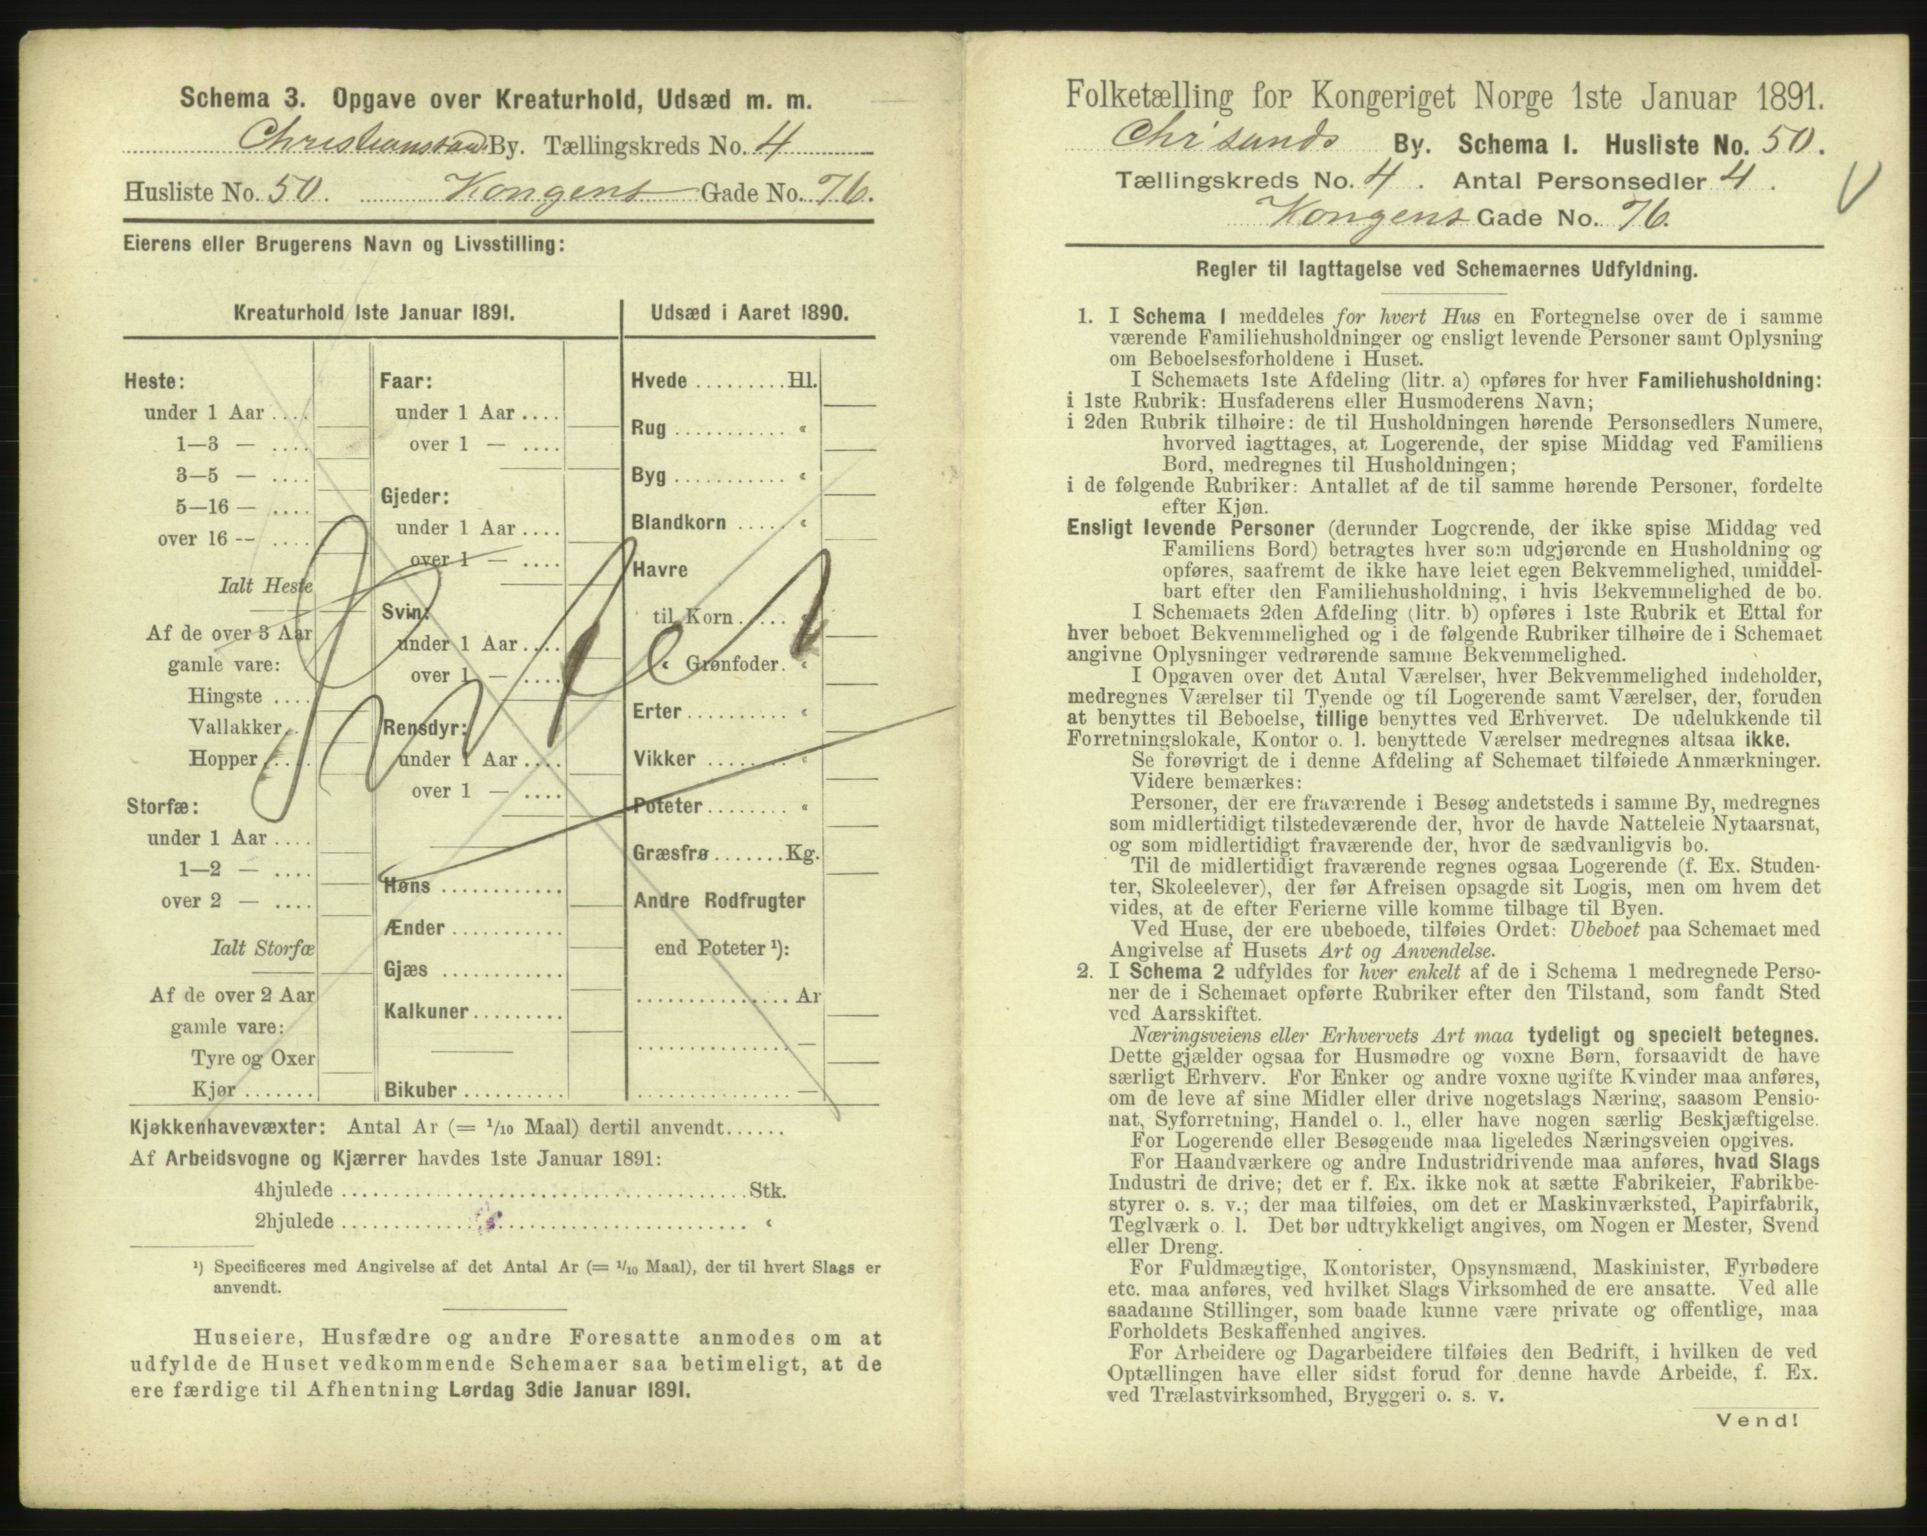 Schema 3. Opgave over Kreaturhold, Udsæd m. m.
Christianssand By. Tællingskreds No. 4
Husliste No. 50. Kongens Gade No. 76.
Eierens eller Brugerens Navn og Livsstilling:
Kreaturhold 1ste Januar 1891.
Heste:
under 1 Aar ....
1—3 — ....
3—5 — ....
5—16 — ....
over 16 -- ....
Ialt Heste
Af de over 3 Aar
gamle vare:
Hingste ....
Vallakker..
Hopper.....
Storfæ:
under 1 Aar ....
1—2 — ....
over 2 — ....
Ialt Storfæ
Af de over 2 Aar
gamle vare:
Tyre og Oxer
Kjør .......
Faar:
under 1 Aar ....
over 1 — ....
Gjeder:
under 1 Aar ....
over 1 — ....
Svin:
under 1 Aar ....
over 1 — ....
Rensdyr:
under 1 Aar ....
over 1 — ....
Høns ............
Ænder ...........
Gjæs ............
Kalkuner.........
Bikuber ..........
Udsæd i Aaret 1890.
Hvede .........Hl.
Rug ........... "
Byg ........... "
Blandkorn ..... "
Havre
til Korn..... "
" Grønfoder.. "
Erter.......... "
Vikker ........ "
Poteter ........ "
Græsfrø .......Kg.
Andre Rodfrugter
end Poteter ¹):
............... Ar
............... —
............... —
Kjøkkenhavevæxter: Antal Ar (= 1/10 Maal) dertil anvendt......
Af Arbeidsvogne og Kjærrer havdes 1ste Januar 1891:
4hjulede ........................................Stk.
2hjulede ........................................ "
¹) Specificeres med Angivelse af det Antal Ar (= 1/10 Maal), der til hvert Slags er
anvendt.
Huseiere, Husfædre og andre Foresatte anmodes om at
udfylde de Huset vedkommende Schemaer saa betimeligt, at de
ere færdige til Afhentning Lørdag 3die Januar 1891.
Folketælling for Kongeriget Norge 1ste Januar 1891.
Chr'sands By. Schema I. Husliste No. 50.
Tællingskreds No. 4. Antal Personsedler 4.
Kongens Gade No. 76.
Regler til Iagttagelse ved Schemaernes Udfyldning.
1. I Schema I meddeles for hvert Hus en Fortegnelse over de i samme
værende Familiehusholdninger og ensligt levende Personer samt Oplysning
om Beboelsesforholdene i Huset.
I Schemaets 1ste Afdeling (litr. a) opføres for hver Familiehusholdning:
i 1ste Rubrik: Husfaderens eller Husmoderens Navn;
i 2den Rubrik tilhøire: de til Husholdningen hørende Personsedlers Numere,
hvorved iagttages, at Logerende, der spise Middag ved Familiens
Bord, medregnes til Husholdningen;
i de følgende Rubriker: Antallet af de til samme hørende Personer, fordelte
efter Kjøn.
Ensligt levende Personer (derunder Logerende, der ikke spise Middag ved
Familiens Bord) betragtes hver som udgjørende en Husholdning og
opføres, saafremt de ikke have leiet egen Bekvemmelighed, umiddel-
bart efter den Familiehusholdning, i hvis Bekvemmelighed de bo.
I Schemaets 2den Afdeling (litr. b) opføres i 1ste Rubrik et Ettal for
hver beboet Bekvemmelighed og i de følgende Rubriker tilhøire de i Schemaet
angivne Oplysninger vedrørende samme Bekvemmelighed.
I Opgaven over det Antal Værelser, hver Bekvemmelighed indeholder,
medregnes Værelser til Tyende og til Logerende samt Værelser, der, foruden
at benyttes til Beboelse, tillige benyttes ved Erhvervet. De udelukkende til
Forretningslokale, Kontor o. l. benyttede Værelser medregnes altsaa ikke.
Se forøvrigt de i denne Afdeling af Schemaet tilføiede Anmærkninger.
Videre bemærkes:
Personer, der ere fraværende i Besøg andetsteds i samme By, medregnes
som midlertidigt tilstedeværende der, hvor de havde Natteleie Nytaarsnat,
og som midlertidigt fraværende der, hvor de sædvanligvis bo.
Til de midlertidigt fraværende regnes ogsaa Logerende (f. Ex. Studen-
ter, Skoleelever), der før Afreisen opsagde sit Logis, men om hvem det
vides, at de efter Ferierne ville komme tilbage til Byen.
Ved Huse, der ere ubeboede, tilføies Ordet: Ubeboet paa Schemaet med
Angivelse af Husets Art og Anvendelse.
2. I Schema 2 udfyldes for hver enkelt af de i Schema 1 medregnede Perso-
ner de i Schemaet opførte Rubriker efter den Tilstand, som fandt Sted
ved Aarsskiftet.
Næringsveiens eller Erhvervets Art maa tydeligt og specielt betegnes.
Dette gjælder ogsaa for Husmødre og voxne Børn, forsaavidt de have
særligt Erhverv. For Enker og andre voxne ugifte Kvinder maa anføres,
om de leve af sine Midler eller drive nogetslags Næring, saasom Pensio-
nat, Syforretning, Handel o. l., eller have nogen særlig Beskjæftigelse.
For Logerende eller Besøgende maa ligeledes Næringsveien opgives.
For Haandværkere og andre Industridrivende maa anføres, hvad Slags
Industri de drive; det er f. Ex. ikke nok at sætte Fabrikeier, Fabrikbe-
styrer o. s. v.; der maa tilføies, om det er Maskinværksted, Papirfabrik,
Teglværk o. l. Det bør udtrykkeligt angives, om Nogen er Mester, Svend
eller Dreng.
For Fuldmægtige, Kontorister, Opsynsmænd, Maskinister, Fyrbødere
etc. maa anføres, ved hvilket Slags Virksomhed de ere ansatte. Ved alle
saadanne Stillinger, som baade kunne være private og offentlige, maa
Forholdets Beskaffenhed angives.
For Arbeidere og Dagarbeidere tilføies den Bedrift, i hvilken de ved
Optællingen have eller sidst forud for denne havde Arbeide, f. Ex.
ved Trælastvirksomhed, Bryggeri o. s. v.
Vend!